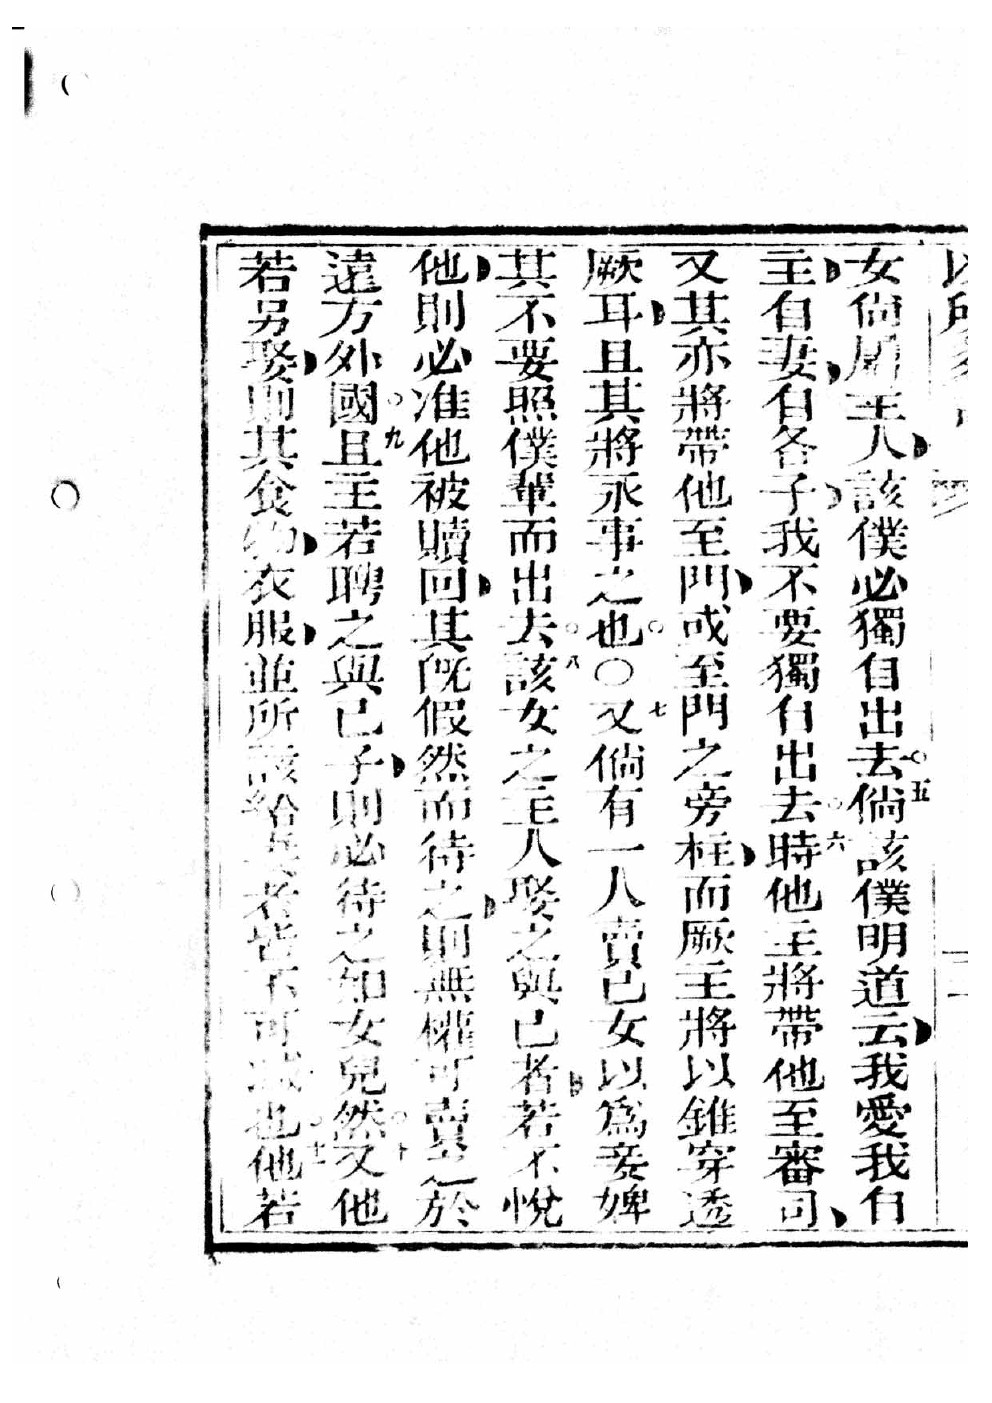 女倘屬主人該僕必獨自出去○五倘該僕明道云我愛我自
主自妻自各子我不要獨自出去○六時他主將帶他至審司
又其亦將帶他至門或至門之旁柱而厥主將以錐穿透
厥耳且其將永事之也○七○又倘有一人賣己女以爲妾婢
其不要照僕輩而出去○八該女之主人娶之與己者若不悅
他則必准他被贖回其旣假然而待之則無權可賣之於
遠方外國○九且主若聘之與己子則必待之如女兒然○十又他
若另娶則其食物衣服並所該給妻者皆不可減也○十一他若